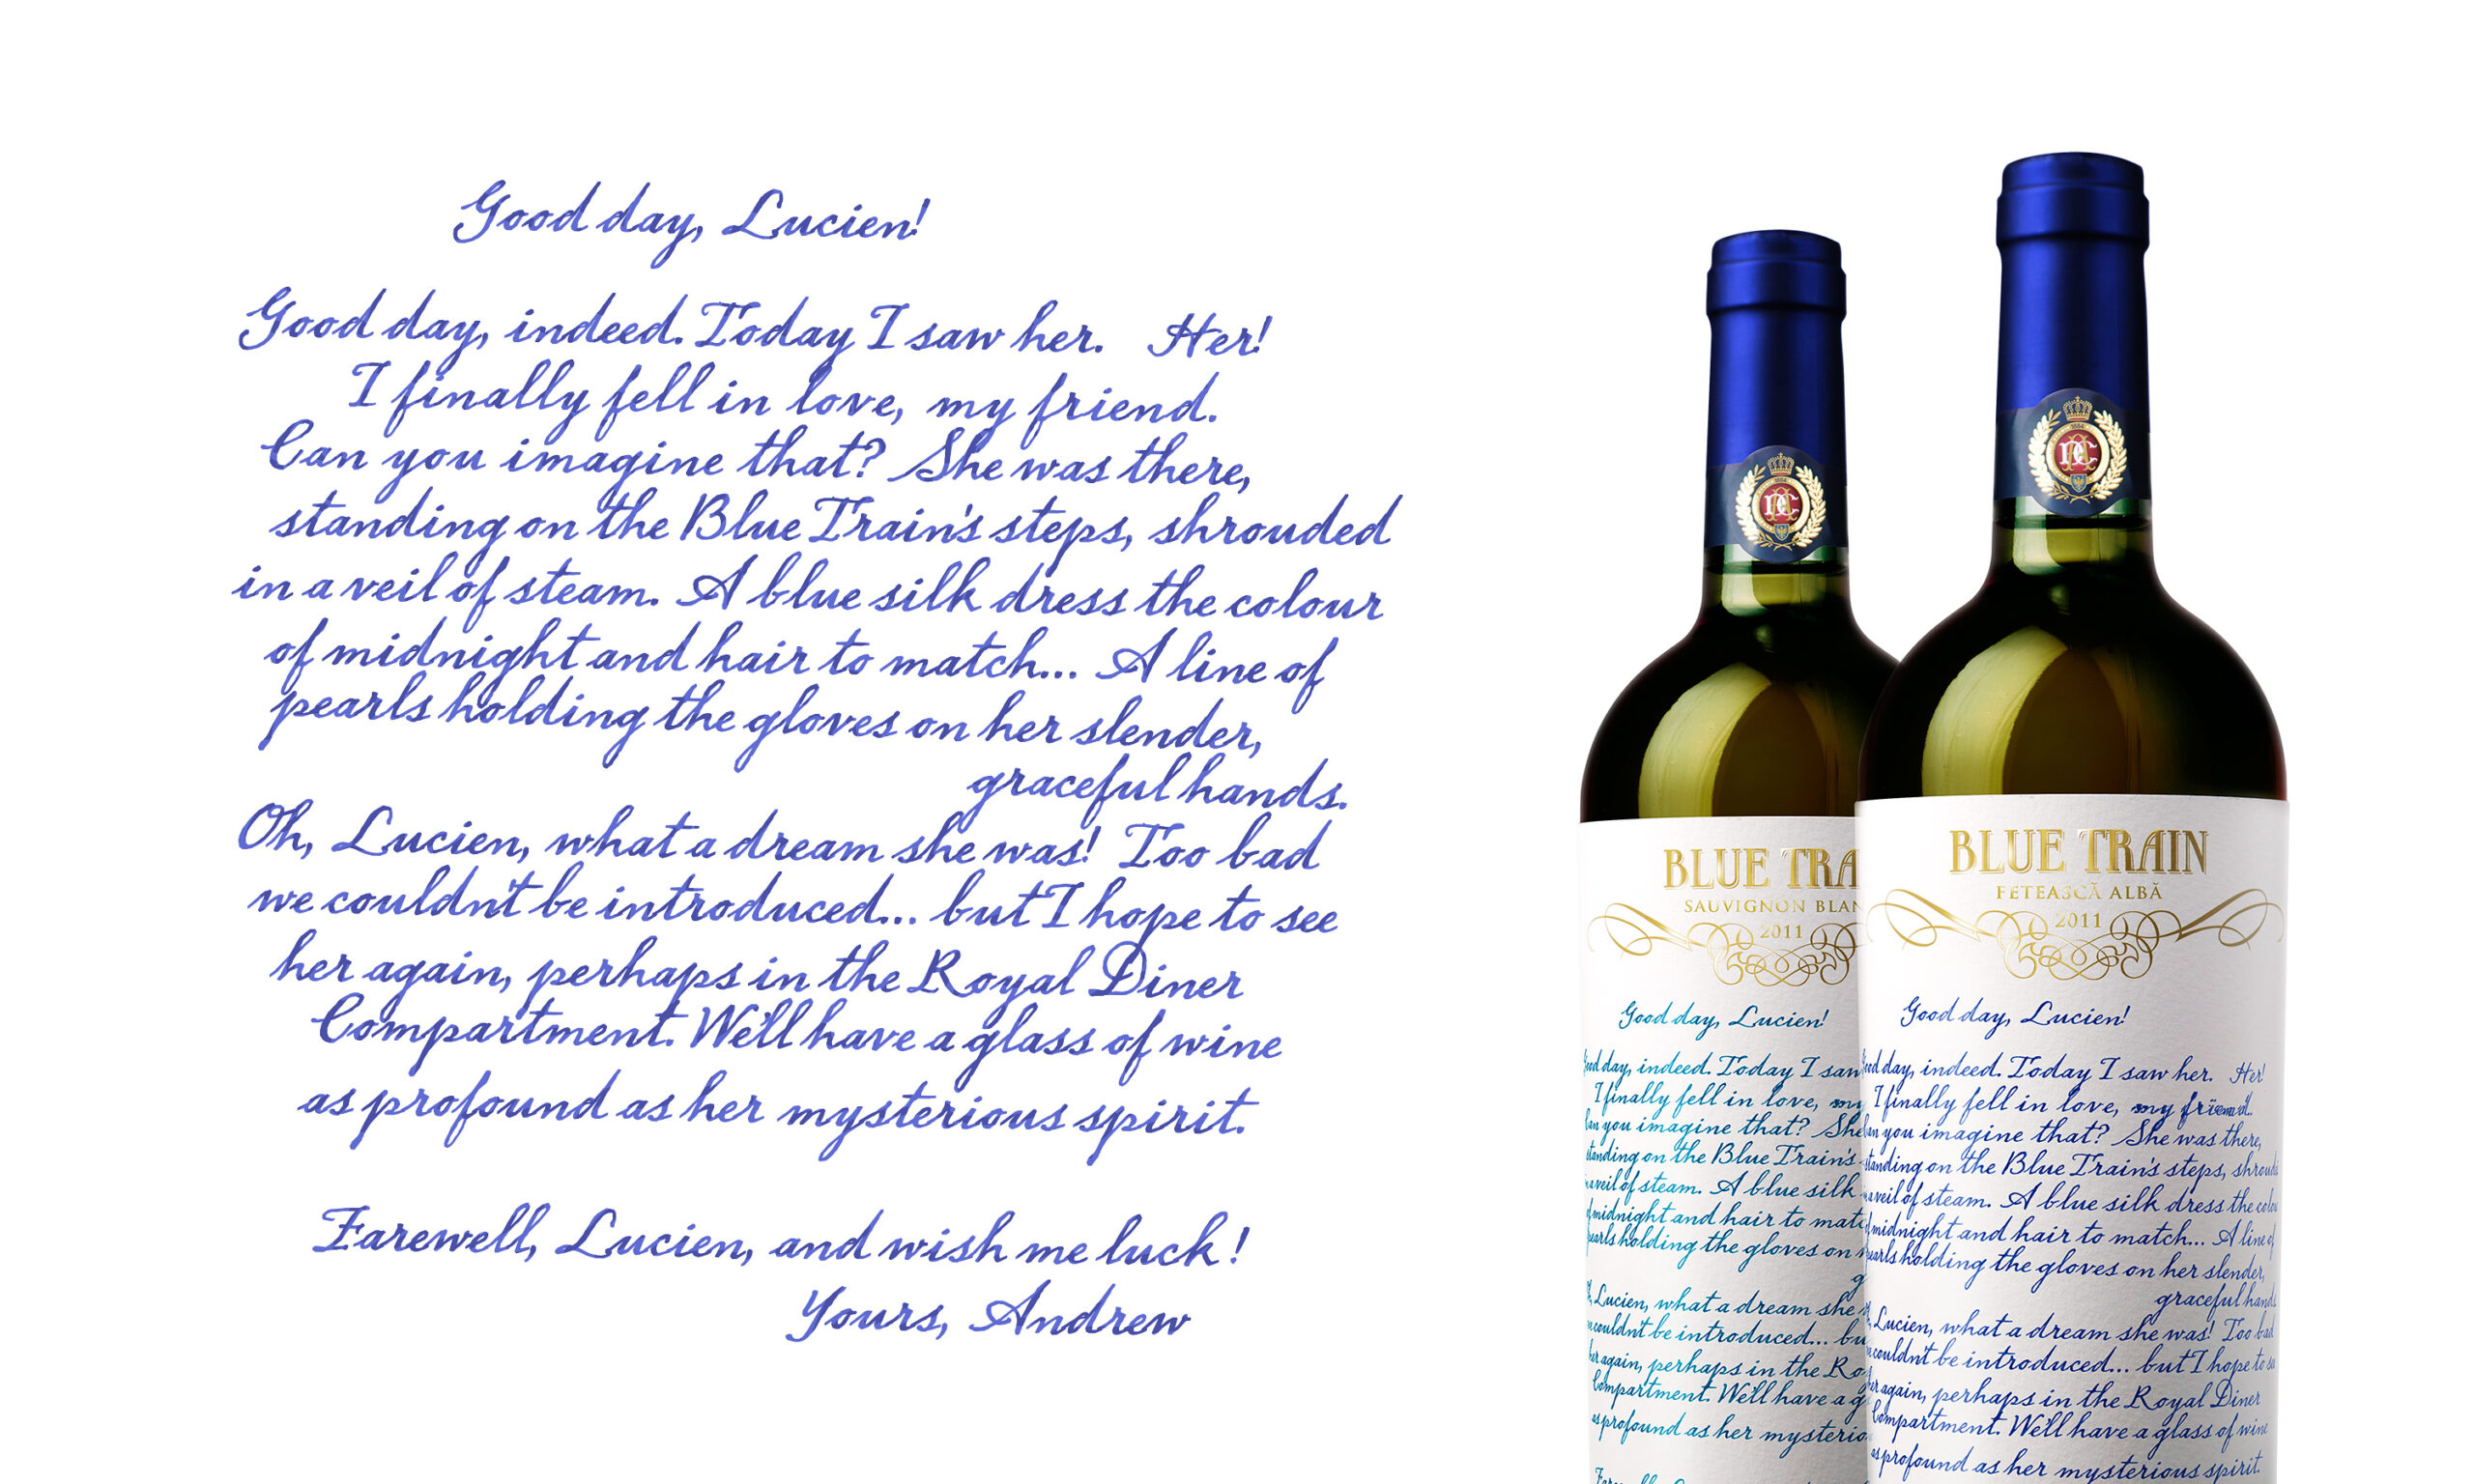 Good day, Lucien!
Good day, indeed. Today I saw her. Her!
I finally fell in love, my friend.
Can you imagine that? She was there,
standing on the Blue Train's steps, shrouded
in a veil of steam. A blue silk dress the colour
of midnight and hair to match... A line of
pearls holding the gloves on her slender,
graceful hands.
Oh, Lucien, what a dream she was! Too bad
we couldn't be introduced... but I hope to see
her again, perhaps in the Royal Diner
Compartment. We'll have a glass of wine
as profound as her mysterious spirit.
Farewell, Lucien, and wish me luck!
Yours, Andrew
BLUE TRA
SAUVIGNON BLAN
2011
Good day, Lucien!
day, indeed. Today I saw
I finally fell in love, my
you imagine that? She
standing on the Blue Train's
veil of steam. A blue silk
midnight and hair to mat
pearls holding the gloves on
Lucien, what a dream she
couldn't be introduced... bu
her again, perhaps in the Ro
Compartment. We'll have a g
as profound as her mysterio
BLUE TRAIN
FETEASCĂ ALBĂ
2011
Good day, Lucien!
day, indeed. Today I saw her. Her!
I finally fell in love, my friend.
you imagine that? She was there,
standing on the Blue Train's steps, shroud
veil of steam. A blue silk dress the colou
midnight and hair to match... A line of
pearls holding the gloves on her slender,
graceful hands
Lucien, what a dream she was! Too bad
couldn't be introduced... but I hope to see
her again, perhaps in the Royal Diner
Compartment. We'll have a glass of wine
as profound as her mysterious spirit.